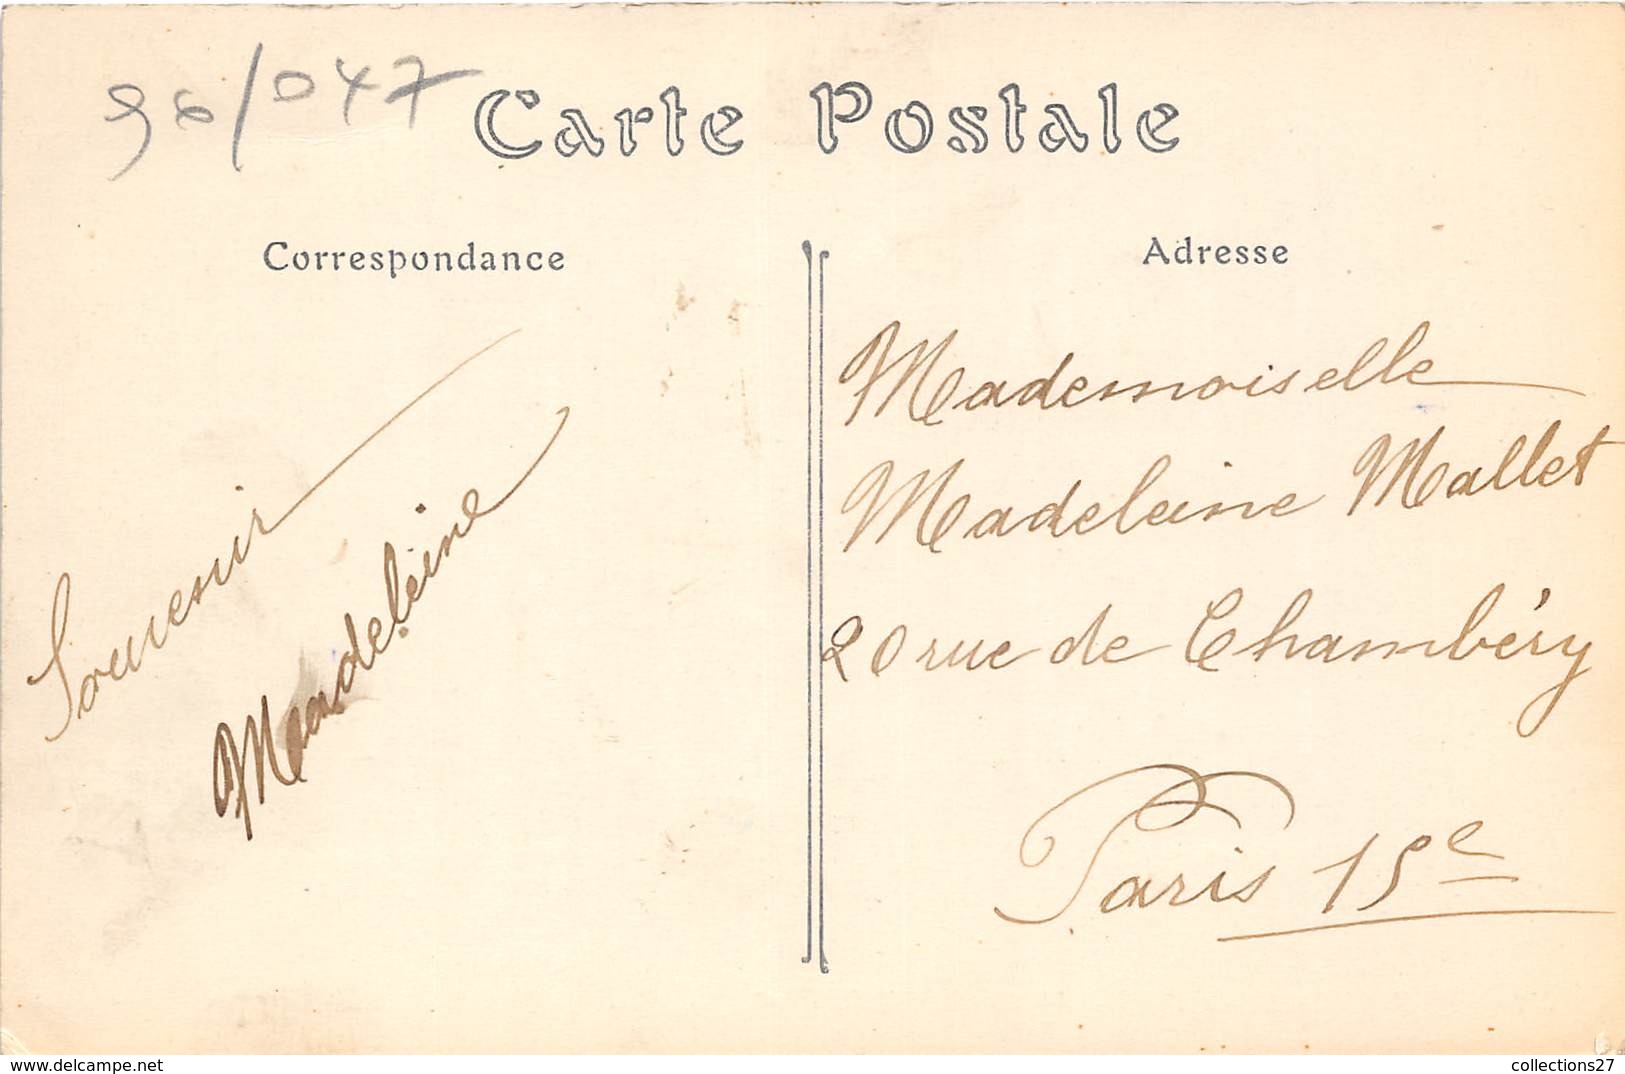 90/047
Carte Postale
Correspondance
Adresse
Souvenir
Madeleine
Mademoiselle
Madeleine Mallet
20 rue de Chambéry
Paris 15e
https://www.delcampe.net
collections27